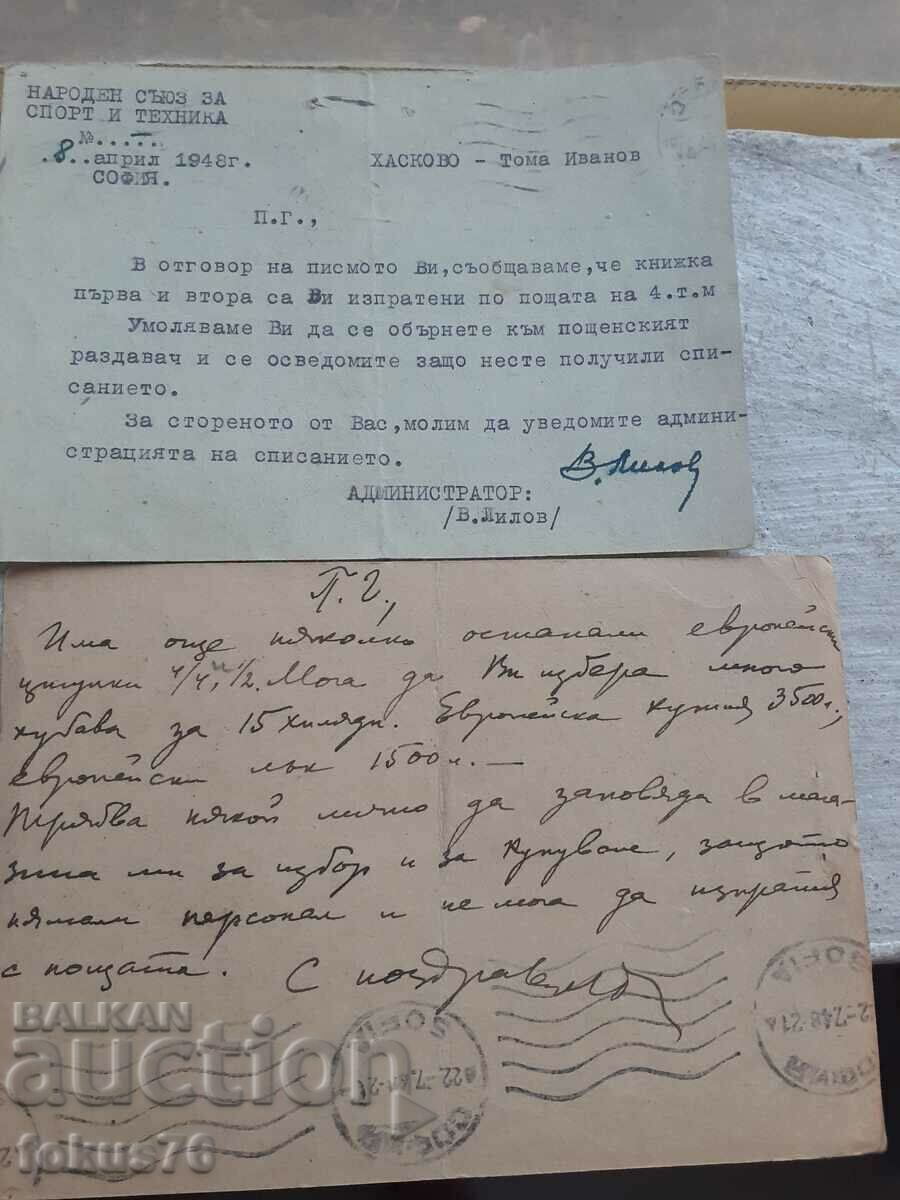 НАРОДЕН СЪЮЗ ЗА
СПОРТ И ТЕХНИКА
№.....
.8..април 1948г.
СОФИЯ.
ХАСКОВО - Тома Иванов
П.Г.,
В отговор на писмото Ви,съобщаваме,че книжка
първа и втора са Ви изпратени по пощата на 4.т.м
Умоляваме Ви да се обърнете към пощенският
раздавач и се осведомите защо несте получили спи-
санието.
За стореното от Вас,молим да уведомите админи-
страцията на списанието.
В.Лилов
АДМИНИСТРАТОР:
/В.Лилов/
П.Г.,
Има още няколко останали европейски
цигулки 4/4, 1/2. Мога да Ви избера много
хубава за 15 хиляди. Европейска кутия 3500л.,
европейски лък 1500л. —
Трябва някой лично да заповяда в мага-
зина ми за избор и за купуване, защото
нямам персонал и не мога да изпратя
с пощата. С поздрав
SOFIA
22.-7.48-2
SOFIA
2-7.48-21
BALKAN
auction
fokus76